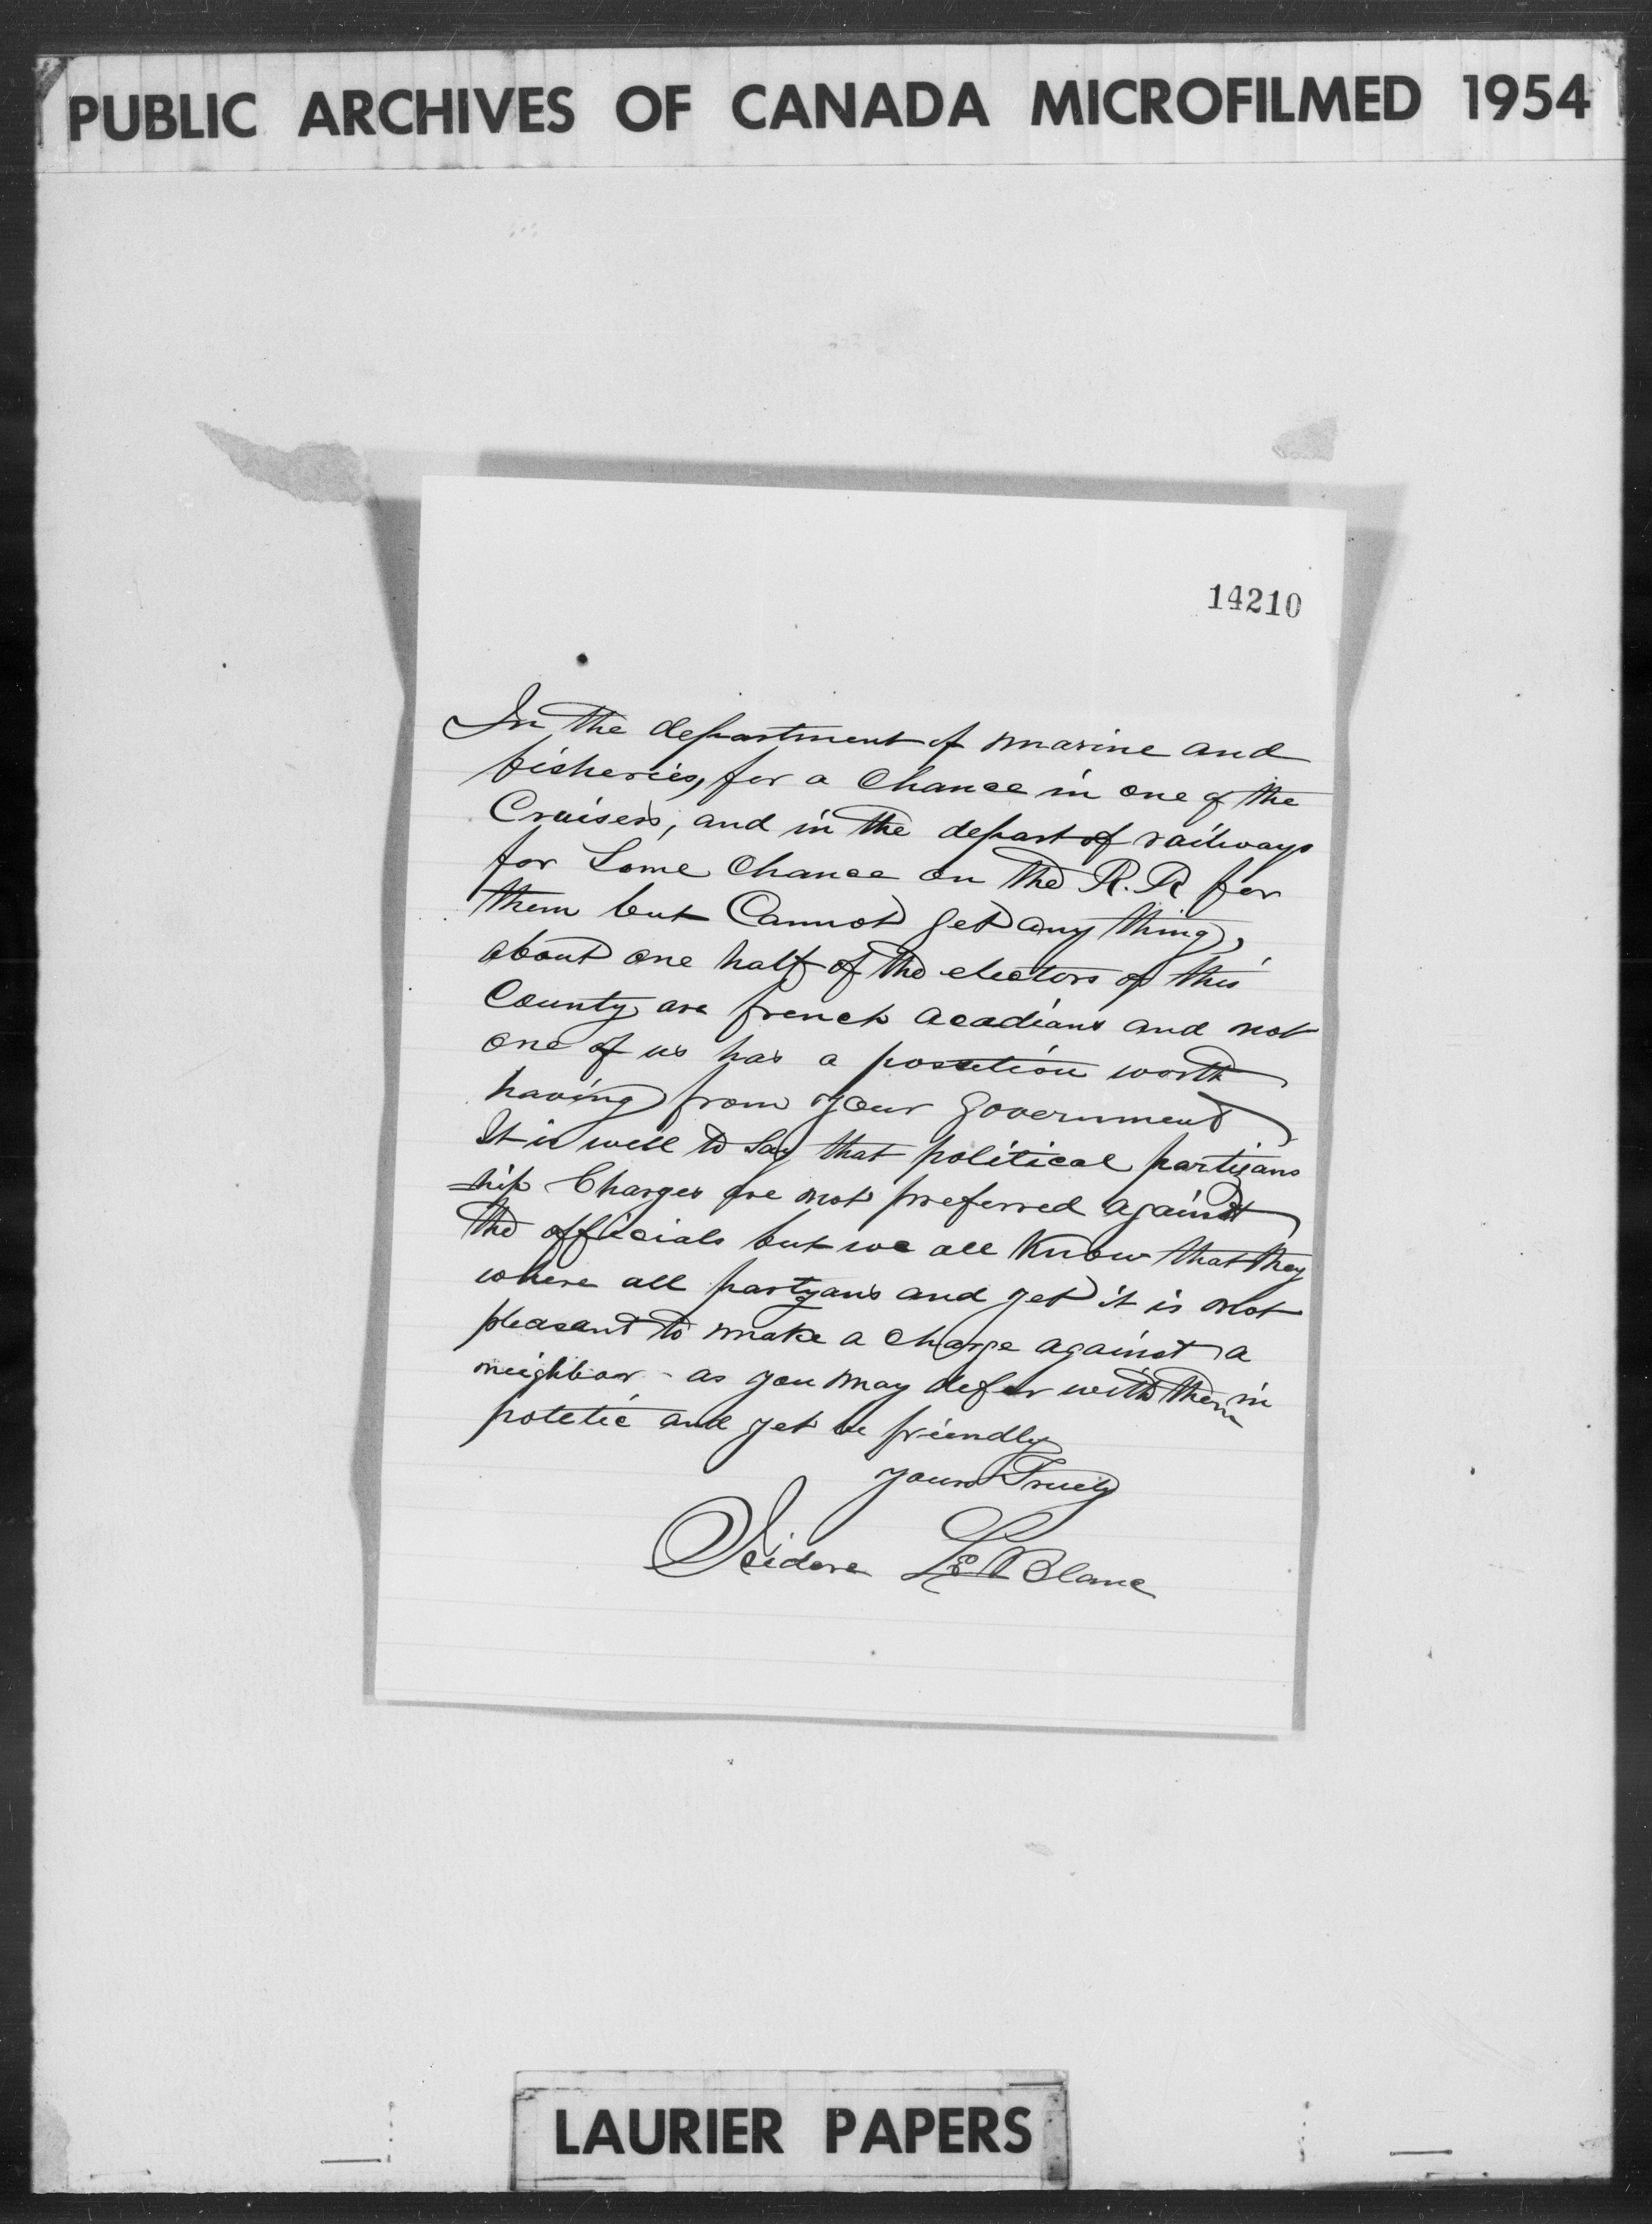 PUBLIC ARCHIVES OF CANADA MICROFILMED 1954
14210
In the department of marine and
fisheries, for a Chance in one of the
Cruisers, and in the depart of railways
for Some Chance on the R.R for
them but Cannot get any thing,
about one half of the electors of this
County are french acadians and not
one of us has a posetion worth
having from your government
It is well to Say that political partizans
-hip Charges are not preferred against
the officials but we all Know that they
where all partyans and yet it is not
pleasant to make a charge against a
neighbor - as you may defer with them in
potetic and yet be friendly
yours Truely
Isidore LeBlanc
LAURIER PAPERS